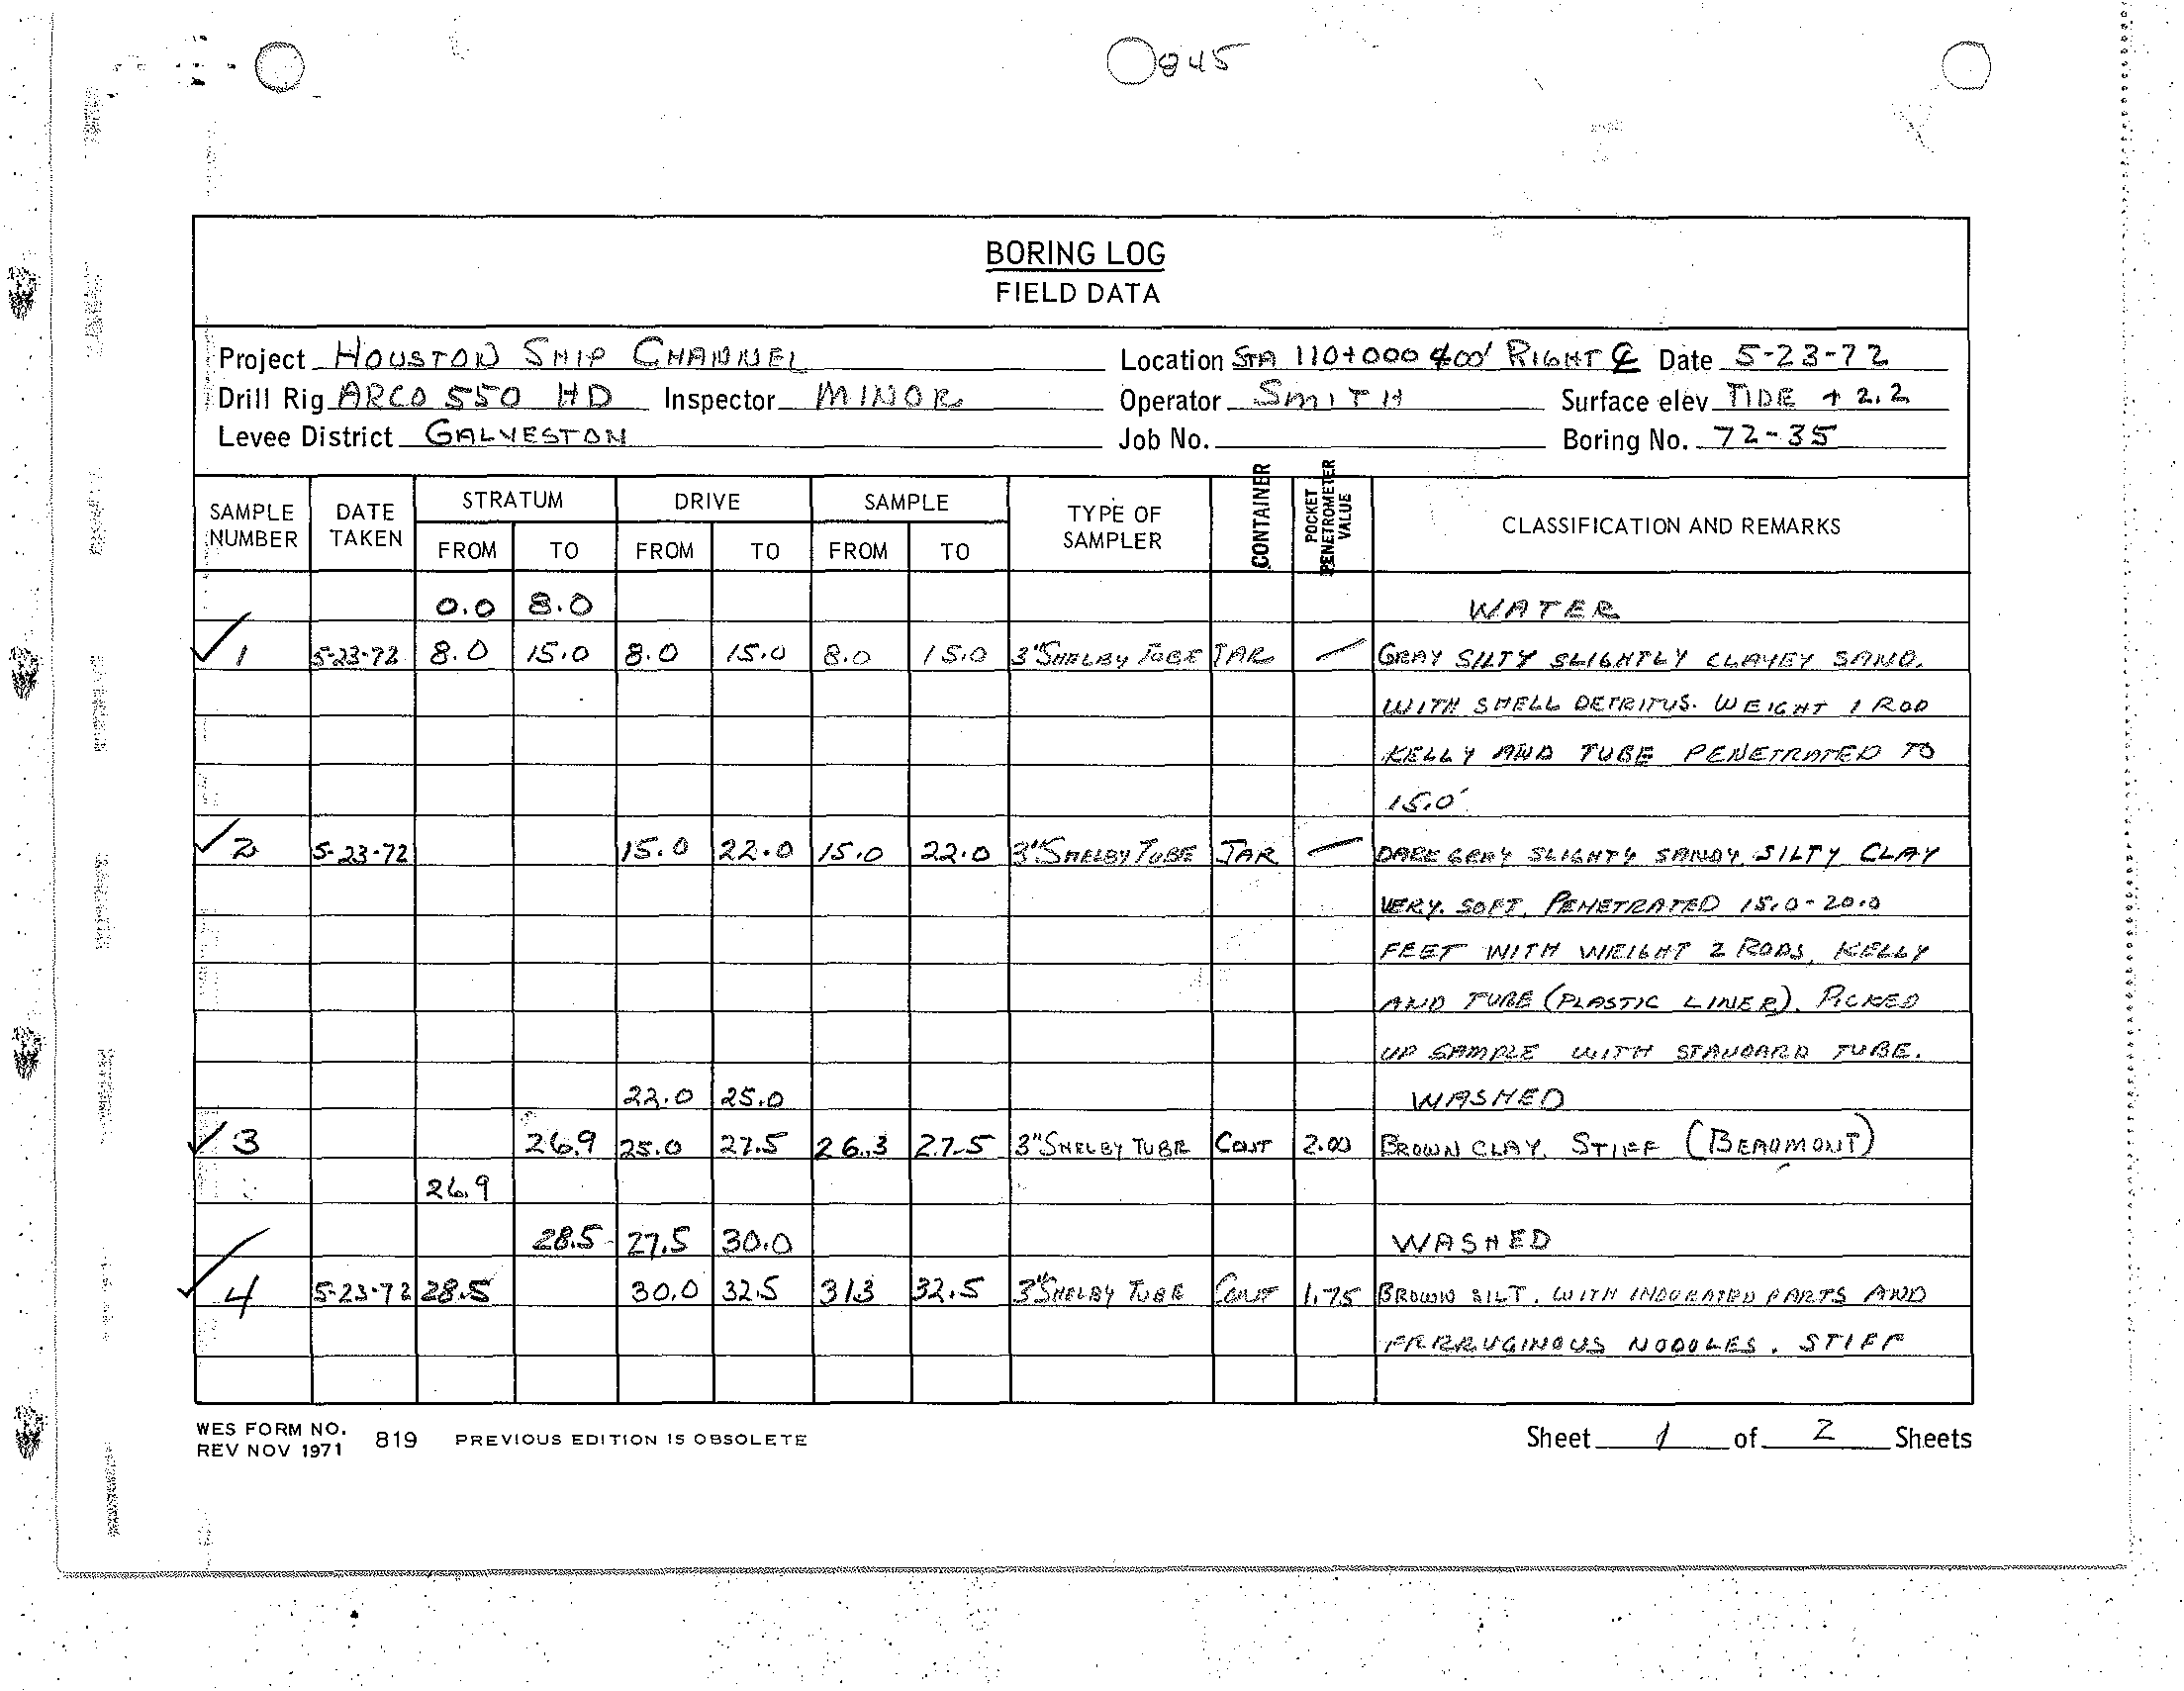 845
BORING LOG
FIELD DATA
Project HOUSTON SHIP CHANNEL Location STA 110+000 400' RIGHT ℄ Date 5-23-72
Drill Rig ARCO 550 HD Inspector MINOR Operator SMITH Surface elev TIDE + 2.2
Levee District GALVESTON Job No. Boring No. 72-35
SAMPLE NUMBER DATE TAKEN STRATUM FROM TO DRIVE FROM TO SAMPLE FROM TO TYPE OF SAMPLER CONTAINER POCKET PENETROMETER VALUE CLASSIFICATION AND REMARKS
0.0 8.0 WATER
✓ 1 5-23-72 8.0 15.0 8.0 15.0 8.0 15.0 3" SHELBY TUBE JAR — GRAY SILTY SLIGHTLY CLAYEY SAND.
WITH SHELL DETRITUS. WEIGHT 1 ROD
KELLY AND TUBE PENETRATED TO
15.0'
✓ 2 5-23-72 15.0 22.0 15.0 22.0 3" SHELBY TUBE JAR — DARK GRAY SLIGHTY SANDY SILTY CLAY
VERY. SOFT. PENETRATED 15.0-20.0
FEET WITH WEIGHT 2 RODS, KELLY
AND TUBE (PLASTIC LINER). PICKED
UP SAMPLE WITH STANDARD TUBE.
22.0 25.0 WASHED
✓ 3 26.9 25.0 27.5 26.3 27.5 3" SHELBY TUBE CONT 2.00 BROWN CLAY. STIFF (BEAUMONT)
26.9
28.5 27.5 30.0 WASHED
✓ 4 5-23-72 28.5 30.0 32.5 31.3 32.5 3" SHELBY TUBE CONT 1.75 BROWN SILT. WITH INDURATED PARTS AND
FERRUGINOUS NODULES. STIFF
WES FORM NO. 819 PREVIOUS EDITION IS OBSOLETE Sheet 1 of 2 Sheets
REV NOV 1971